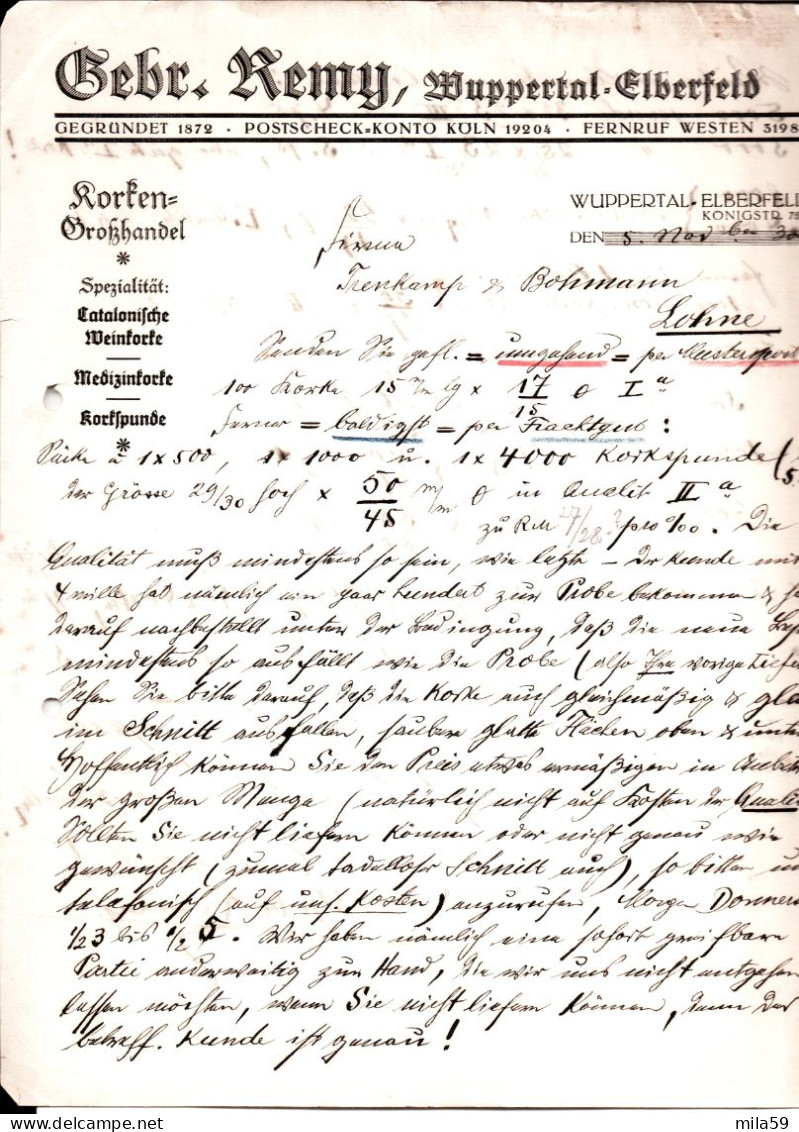 Gebr. Remy, Wuppertal-Elberfeld
GEGRÜNDET 1872 · POSTSCHECK=KONTO KÖLN 19204 · FERNRUF WESTEN 3198
Korken=
Großhandel
*
Spezialität:
Catalonische
Weinkorke
Medizinkorke
Korkspunde
*
WUPPERTAL-ELBERFELD
KÖNIGSTR. 78
DEN 5. Novber 30
Firma
Trenkamp & Bohmann
Lohne
Senden Sie gefl. = umgehend = per Musterpost
100 Korke 15 m/m lg x 17/15 Ia
Ferner = baldigst = per Frachtgut :
Säcke a 1x500, 1x1000 u. 1x4000 Korkspunde (
der Grösse 29/30 hoch x 50/45 m/m in Qualit IIa
zu RM 27/28.- pro %o. Die
Qualität muß mindestens so sein, wie letzte - Der Kunde mit
4 mille hat nämlich ein paar hundert zur Probe bekommen &
darauf nachbestellt unter der Bedingung, daß die neue
mindestens so ausfällt wie die Probe (also Ihre vorige
Sehen Sie bitte darauf, daß die Korke auch gleichmäßig &
im Schnitt ausfallen, saubere glatte Flächen oben & unten
Hoffentlich können Sie den Preis etwas ermäßigen in
der großen Menge (natürlich nicht auf Kosten der Quali
Sollten Sie nicht liefern können oder nicht genau wie
gewünscht (zumal tadelloser Schnitt auch), so bitten
telefonisch (auf uns. Kosten) anzurufen, Morgen Donners
1/23 bis 1/2 5. Wir haben nämlich eine sofort greifbare
Partie anderweitig zur Hand, die wir uns nicht entgehen
lassen möchten, wenn Sie nicht liefern können, denn der
betreff. Kunde ist genau!
delcampe.net
mila59